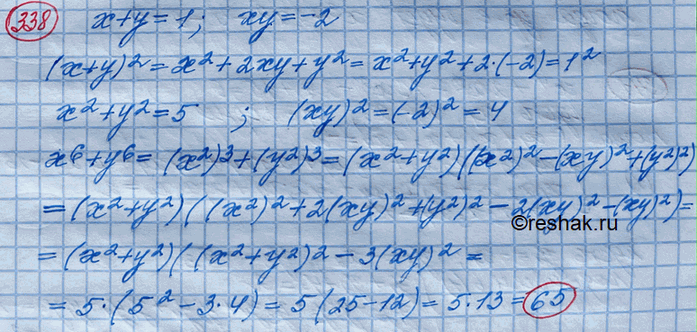 338 x+y=1; xy=-2
(x+y)²=x²+2xy+y²=x²+y²+2·(-2)=1²
x²+y²=5 ; (xy)²=(-2)²=4
x⁶+y⁶= (x²)³+(y²)³=(x²+y²)((x²)²-(xy)²+(y²)²)
=(x²+y²)((x²)²+2(xy)²+(y²)²-2(xy)²-(xy)²)=
©reshak.ru
=(x²+y²)((x²+y²)²-3(xy)²=
=5·(5²-3·4)=5(25-12)=5·13=65